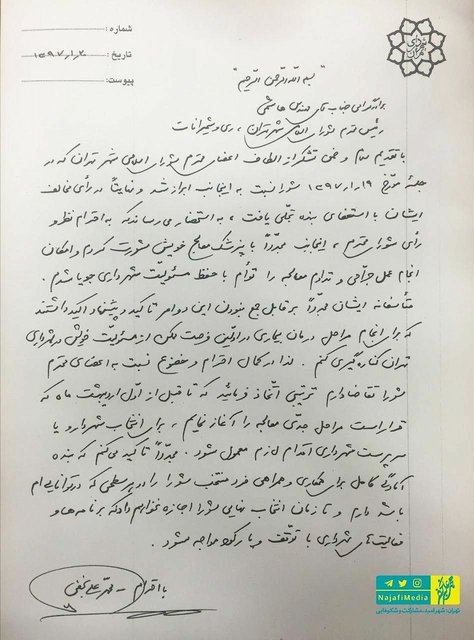 شماره :
تاریخ : ۲۰ر۱ر۱۳۹۷
پیوست :
"بسم الله الرحمن الرحیم"
برادر گرامی جناب آقای مهندس هاشمی
رئیس محترم شورای اسلامی شهر تهران ، ری و شمیرانات
با تقدیم سلام و ضمن تشکر از الطاف اعضای محترم شورای اسلامی شهر تهران که در
جلسه مورخ ۱۹ر۱ر۱۳۹۷ شورا نسبت به اینجانب ابراز شد و نهایتاً در رأی مخالف
ایشان با استعفای بنده تجلّی یافت ، به استحضار می رساند که به احترام نظر و
رأی شورای محترم ، اینجانب مجدّداً با پزشک معالج خویش مشورت کردم و امکان
انجام عمل جراحی و تداوم معالجه را توأم با حفظ مسئولیت شهرداری جویا شدم .
متأسفانه ایشان مجدّداً بر قابل جمع نبودن این دو امر تاکید و پیشنهاد اکید داشتند
که برای انجام مراحل درمان بیماری در اوّلین فرصت ممکن از مسئولیت خویش در شهرداری
تهران کناره گیری کنم . لذا در کمال احترام و خضوع نسبت به اعضای محترم
شورا تقاضا دارم ترتیبی اتّخاذ فرمائید که تا قبل از اوّل اردیبهشت ماه که
قرار است مراحل جدّی معالجه را آغاز نمایم ، برای انتخاب شهردار و یا
سرپرست شهرداری اقدام لازم معمول شود . مجدّداً تاکید می کنم که بنده
آمادگی کامل برای همکاری و همراهی فرد منتخب شورا را در هر سطحی که در توانایی ام
باشد دارم و تا زمان انتخاب نهایی شورا اجازه نخواهم داد که برنامه ها و
فعالیت های شهرداری با توقّف و یا رکود مواجه شود .
با احترام – محمد علی نجفی
NajafiMedia
تهران؛ شهر امید، مشارکت و شکوفایی